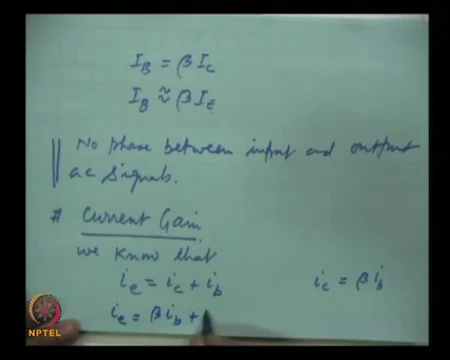 I_B = β I_C
I_B ≈ β I_E
No phase between input and output
ac signals.
# Current Gain
we know that
i_e = i_c + i_b
i_c = β i_b
i_e = β i_b +
NPTEL